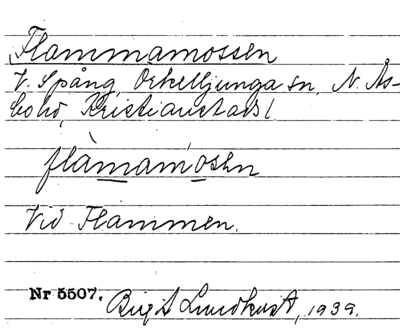 Flammamossen
V. Spång, Örkelljunga sn, N. Ås-
bo hd, Kristianstads l
flàmamosen
Vid Flammen.
Nr 5507. Birgit Lundkvist, 1939.